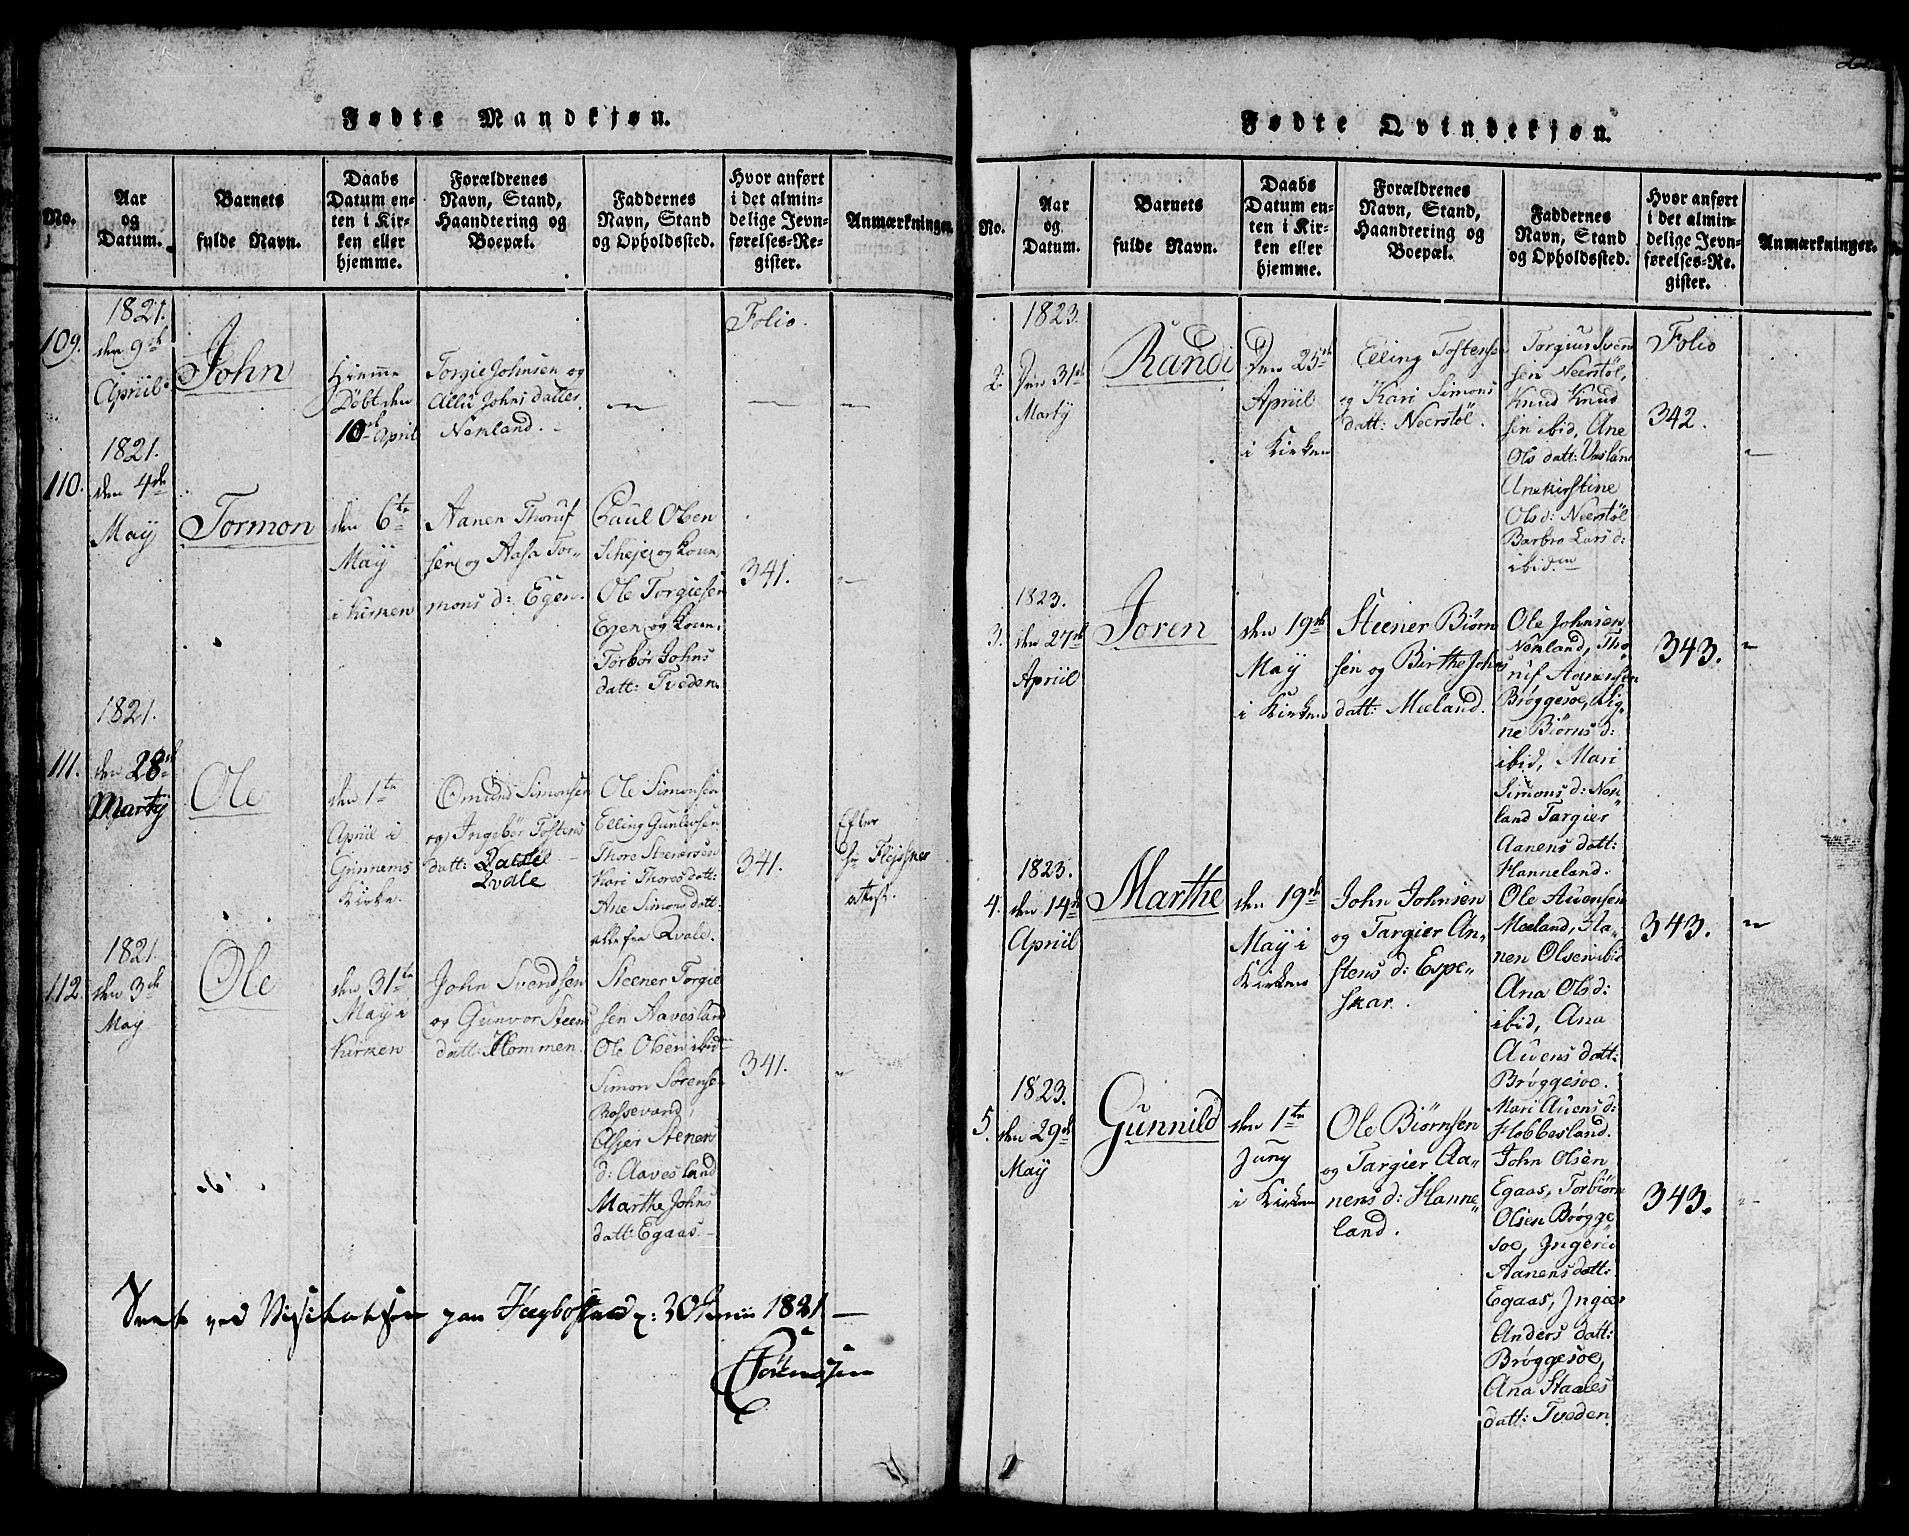 Fødte Mandkjøn.
No.
Aar
og
Datum.
Barnets
fulde Navn.
Daabs
Datum en-
ten i Kir-
ken eller
hjemme.
Forældrenes
Navn, Stand,
Haandtering og
Boepæl.
Faddernes
Navn, Stand
og Opholdssted.
Hvor anført
i det almin-
delige Jevn-
førelses-Re-
gister.
Anmærkninger.
109.
1821.
den 9de
April
John
Hiemme
Døbt den
10de April
Torgie Johnsen og
Allu Johns datter
Nemland.
—
Folio.
—
—
110.
1821.
den 4de
May
Tormon
den 6te
May
i Kirken
Aanen Thoruf
sen og Aasa Tor-
mons d: Egen.
Paul Olsen
Scheje og Kone,
Ole Torgiesen
Egen og Kone,
Torbør Johns
datt: Tveden.
341.
—
111.
1821.
den 28de
Marty
Ole
den 1te
April i
Grinnems
Kirke.
Omund Simonsen
og Ingebør Tostens
datt: Qvalle
Qvale
Ole Simonsen
Elling Gunlevsen
Thore Steenersen
Kari Thores datt:
Ane Simons datt:
alle fra Qvale.
341.
Efter
Hr Flejschner
attest.
112.
1821.
den 3de
May
Ole
den 31te
May i
Kirken
John Svendsen
og Gunvor Steens
datt: Hommen.
Steener Torgie
sen Aavesland
Ole Olsen ibid
Simon Sørensen
Rossevand,
Asjer Steners
d: Aavesland
Marthe Johns
datt: Egaas.
341.
Seet ved Visitatsen paa Hægbostad d: 30 Junii 1821 —
Sørenssen
Fødte Qvindekjøn.
No.
Aar
og
Datum.
Barnets
fulde Navn.
Daabs
Datum en-
ten i Kir-
ken eller
hjemme.
Forældrenes
Navn, Stand,
Haandtering og
Boepæl.
Faddernes
Navn, Stand
og Opholdssted.
Hvor anført
i det almin-
delige Jevn-
førelses-Re-
gister.
Anmærkninger.
2.
1823.
Den 31te
Marty
Randi
Den 25de
April
i Kirken
Elling Tostensen
og Kari Simons
datt: Neerstøl.
Torgius Sven
sen Neerstøl,
Knud Knud
sen ibid, Ane
Ols datt: Vasland
Anekirstine
Ols d: Neerstøl
Barbro Lars d:
ibidm
Folio
342.
—
3.
1823.
den 27de
April
Joren
den 19de
May
i Kirken
Steener Biørn
sen og Birthe Johns
datt: Meeland.
Ole Johnsen
Nemland, Tho-
ruf Aanensen
Brøggesoe, Sig-
ne Biørns d:
ibid, Mari
Simons d: Nem
land Targier
Aanens datt:
Hanneland.
343.
—
4.
1823.
den 14de
April
Marthe
den 19de
May i
Kirken
John Johnsen
og Targier An-
stens d: Espe-
skar.
Ole Auensen
Meeland, Aa-
nen Olsen ibid
Ana Ols d:
ibid, Ana
Auens datt:
Brøggesoe.
Mari Auens d:
Flobbesland.
343.
—
5.
1823.
den 29de
May
Gunnild
den 1te
Juny
i Kirken
Ole Biørnsen
og Targier Aa-
nens d: Hanne-
land.
John Olsen
Egaas, Torbiørn
Olsen Brøgge
soe, Ingeri
Aanens datt:
Egaas, Ingaas
Anders datt:
Brøggesoe,
Ana Staales
datt: Tveden.
343.
—